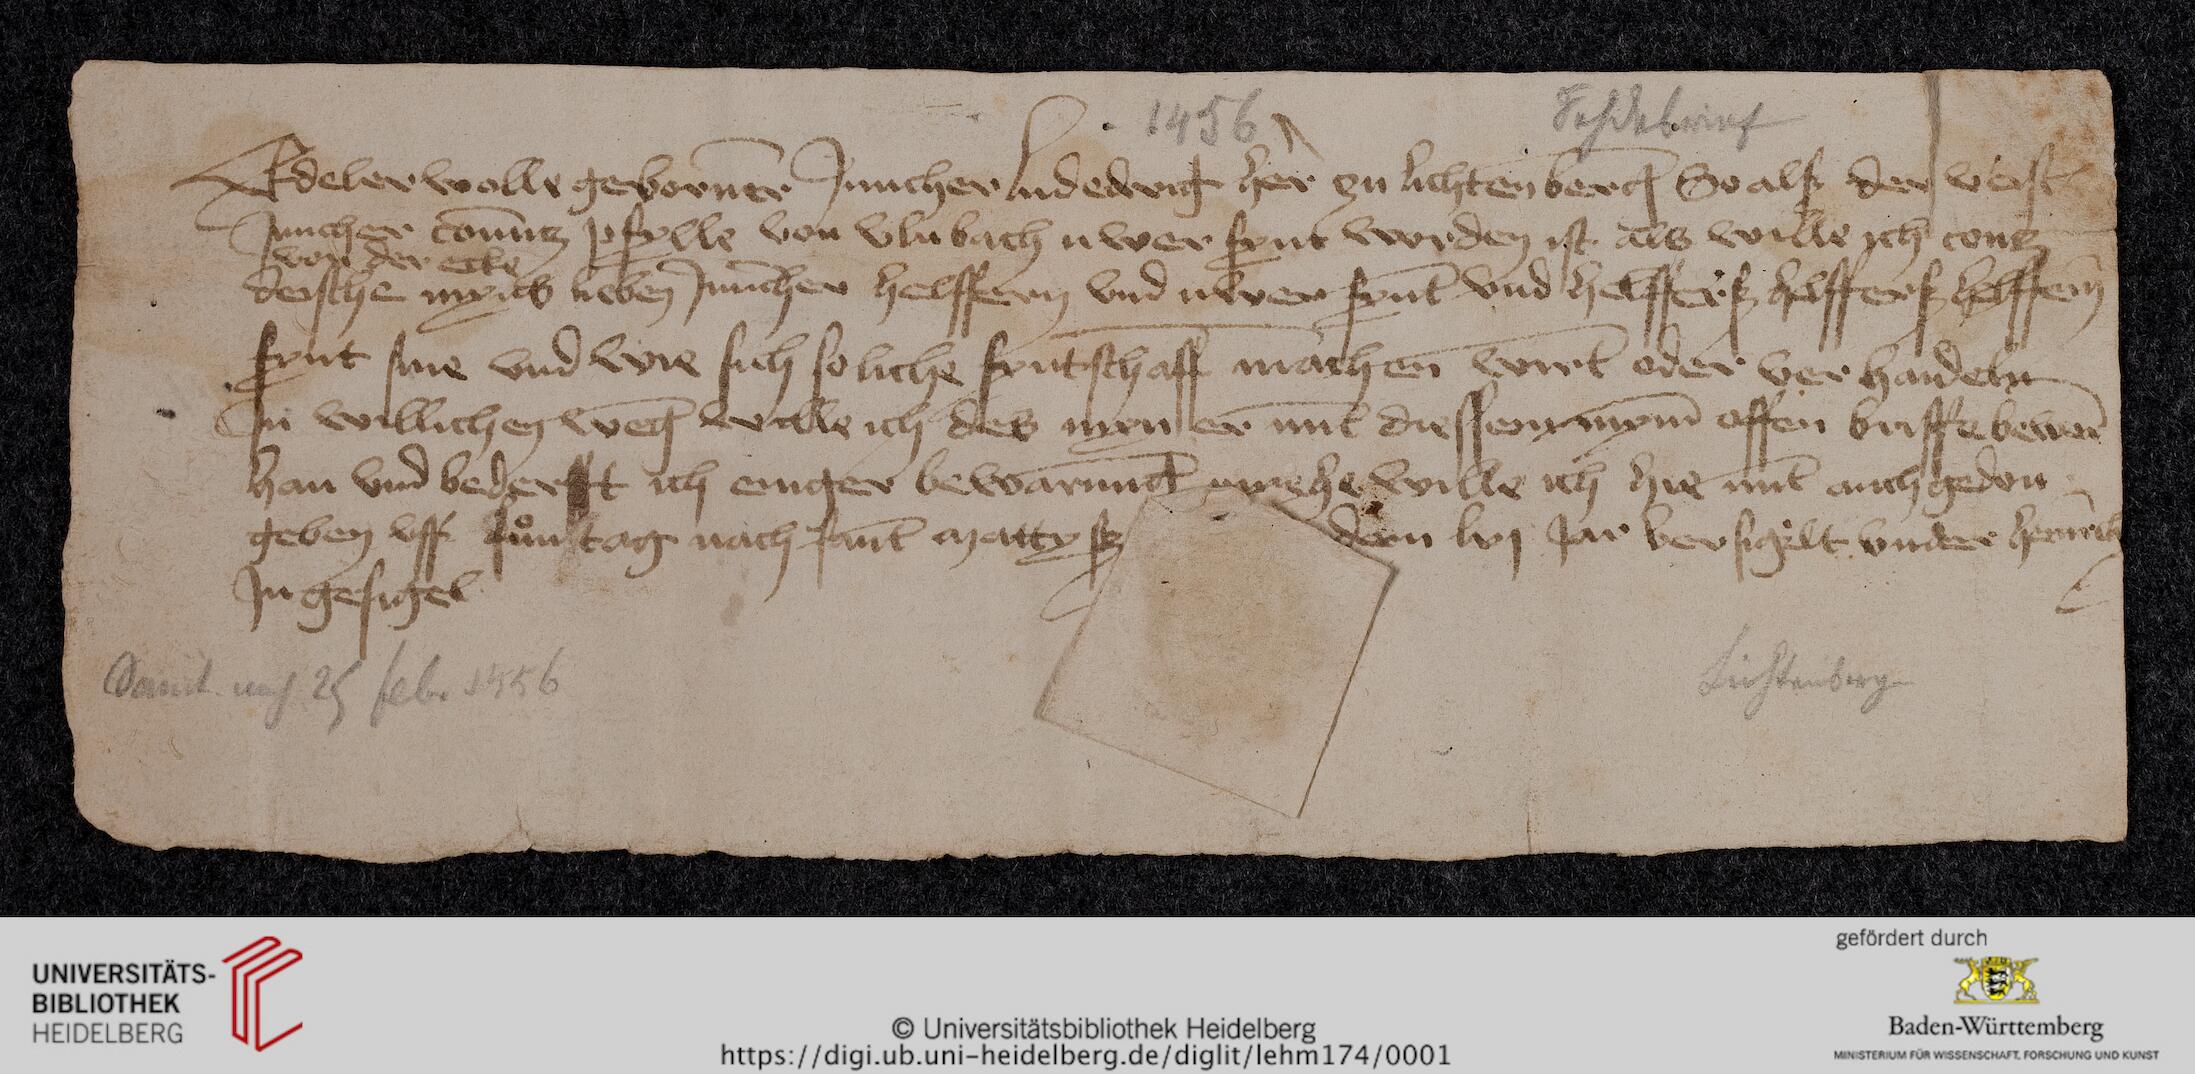 1456
Fehdebrief
Edeler wolle geborner Juncher ludewig her zu lichtenberg So alß der vest
Juncher contz pfylle von vlnbach uwer fynt worden ist als wille ich contz
von der ecke
deische myns lieben Juncher helffern vnd uwer fynt vnd helfferß helfferß helffern
fynt sine vnd wie sich soliche fyntschaff machen wirt oder verhandeln
In willichen weg wille ich des myn er mit diessem mym offen briffe bewert
han vnd bederfft ich einger bewarung mehe wille ich hie mit auch gedon
geben vff tag nach sant mattyß dem lvj Jar versigelt vnder henrich
Jn gesigel
25 febr. 1456
Lichtenberg
UNIVERSITÄTS-
BIBLIOTHEK
HEIDELBERG
© Universitätsbibliothek Heidelberg
https://digi.ub.uni-heidelberg.de/diglit/lehm174/0001
gefördert durch
Baden-Württemberg
MINISTERIUM FÜR WISSENSCHAFT, FORSCHUNG UND KUNST